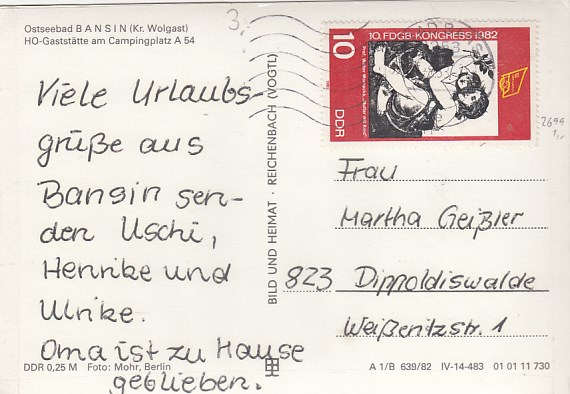 Ostseebad BANSIN (Kr. Wolgast)
HO-Gaststätte am Campingplatz A 54
3,
Viele Urlaubs-
grüße aus
Bansin sen-
den Uschi,
Henrike und
Ulrike.
Oma ist zu Hause
geblieben.
DDR 0,25 M Foto: Mohr, Berlin
BILD UND HEIMAT · REICHENBACH (VOGTL)
10. FDGB-KONGRESS 1982
10
DDR
2699
Frau
Martha Geißler
823 Dippoldiswalde
Weißeritzstr. 1
A 1/B 639/82 IV-14-483 01 01 11 730